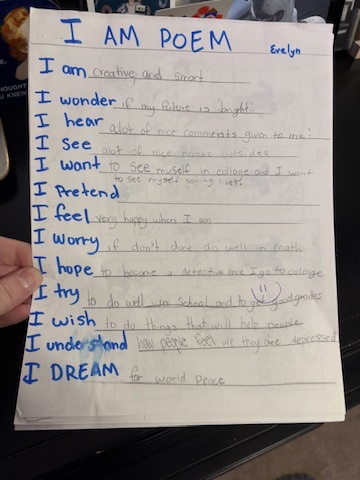 THOUGHT
I AM POEM
Evelyn
I am creative and smart
I wonder if my future is bright.
I hear alot of nice comments given to me!
I see alot of nice nature outside
I want to see myself in collage and I want
to see myself saving lives.
I Pretend
I feel very happy when I am
I worry if don't do well in math
I hope to become a detective once I go to collage
I try to do well in school and to get good grades
I wish to do things that will help people
I understand how people feel we thy are depressed
I DREAM for world peace